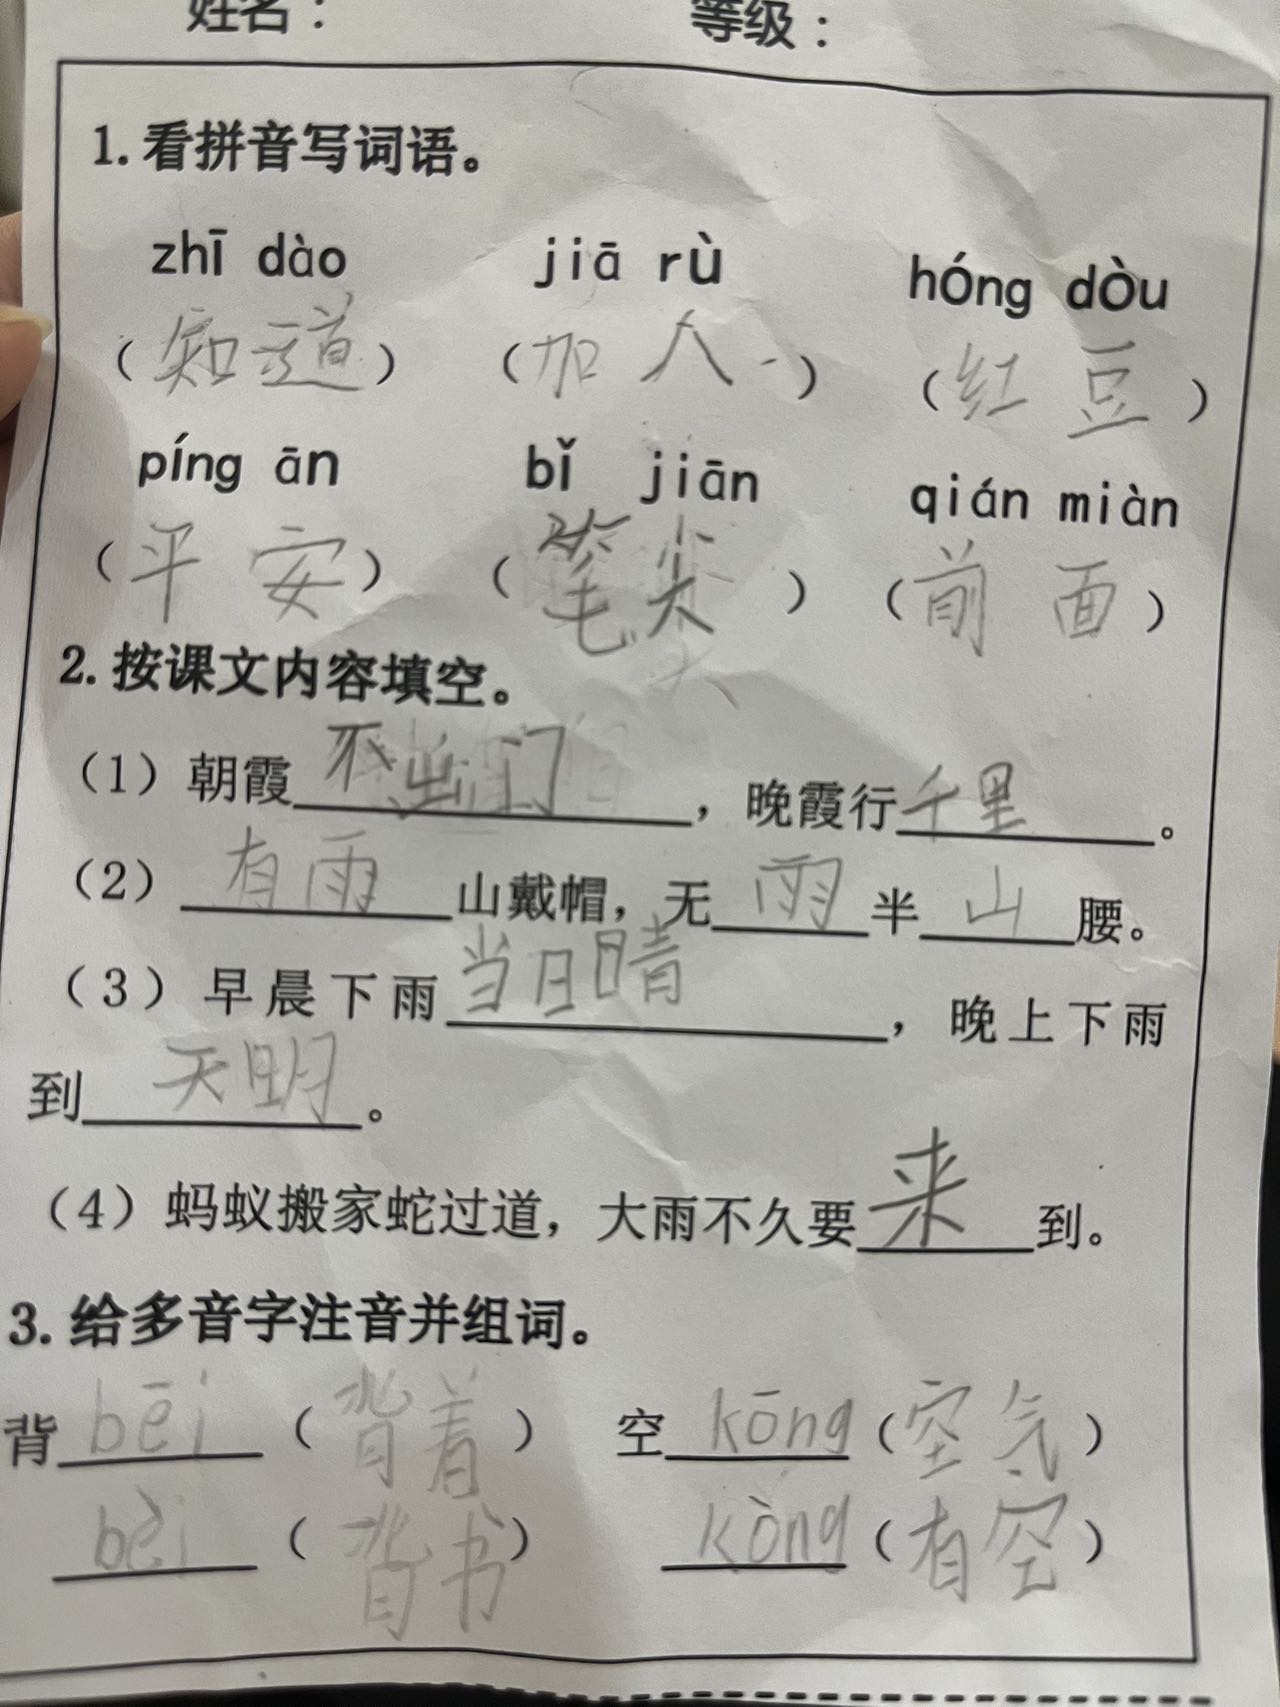 姓名： 等级：
1. 看拼音写词语。
zhī dào jiā rù hóng dòu
（知道） （加入） （红豆）
píng ān bǐ jiān qián miàn
（平安） （笔尖） （前面）
2. 按课文内容填空。
（1）朝霞不出门，晚霞行千里。
（2）有雨山戴帽，无雨半山腰。
（3）早晨下雨当日晴，晚上下雨
到天明。
（4）蚂蚁搬家蛇过道，大雨不久要来到。
3. 给多音字注音并组词。
背bēi（背着） 空kōng（空气）
bèi（背书） kòng（有空）